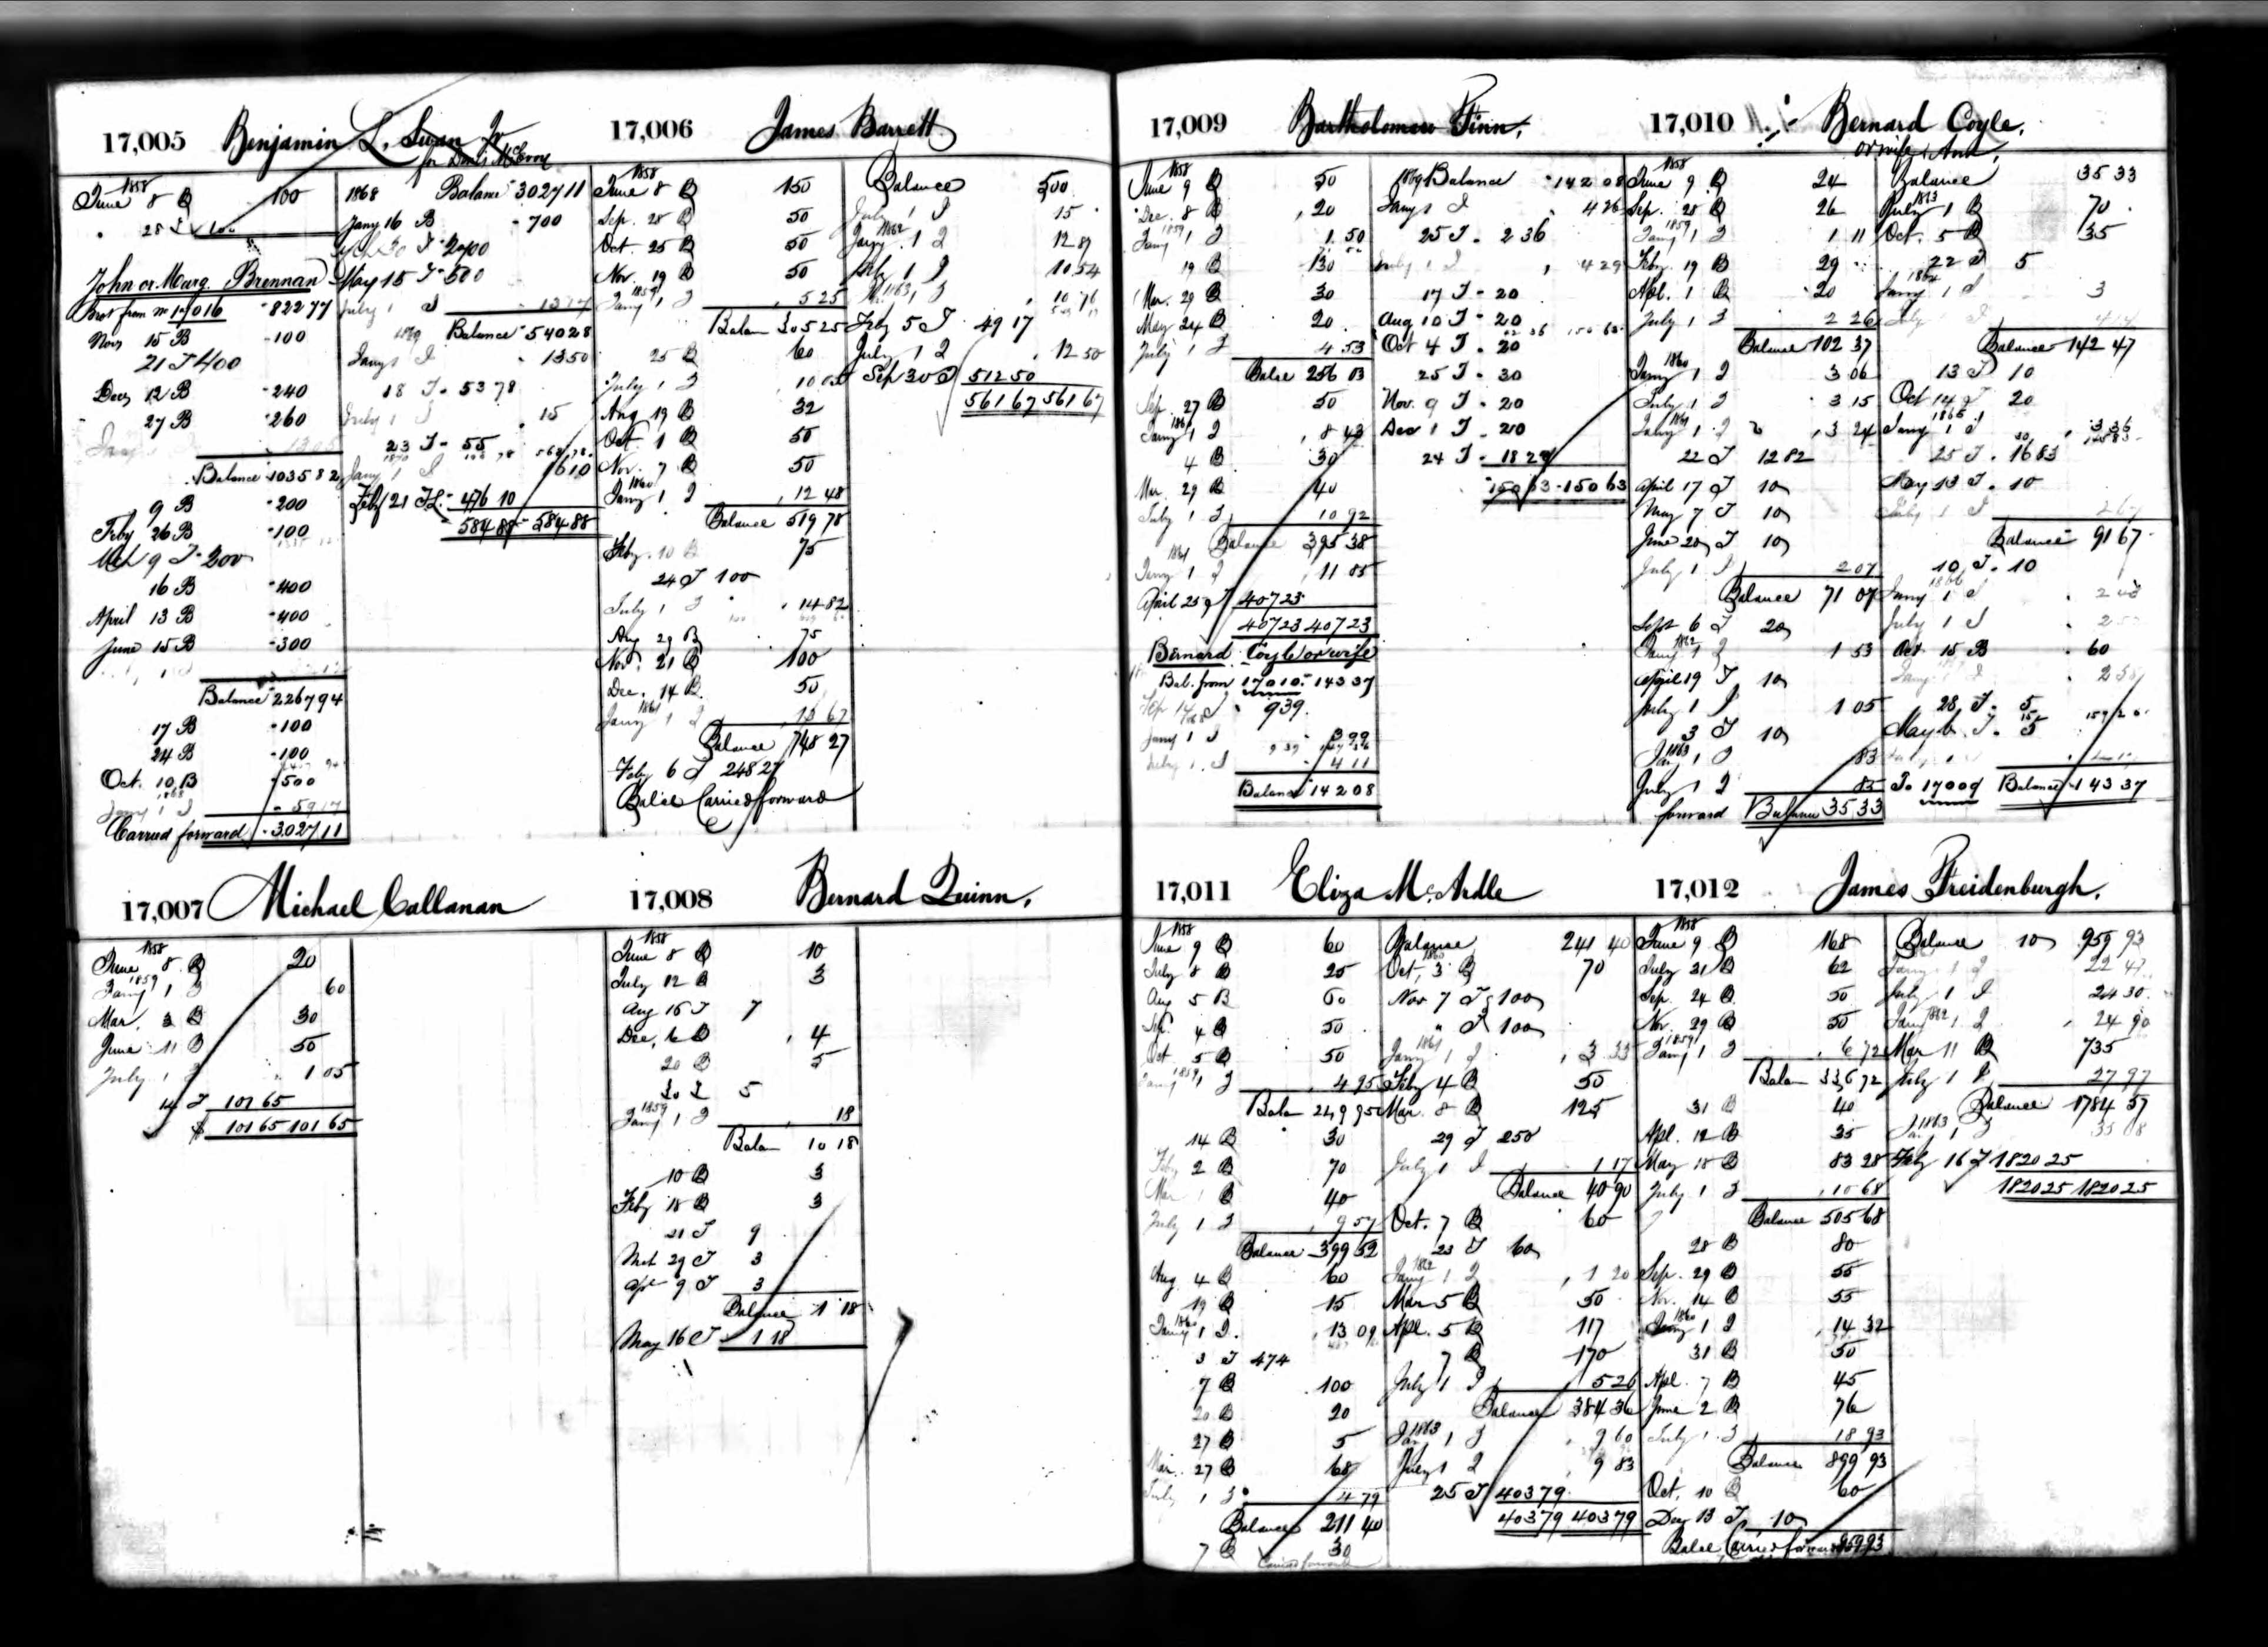 17,005 Benjamin L. Swan Jr
for Denis McEvoy
1858
June 8 B 100
" 28 T 100
John or Marg. Brennan
Brot from No 17016 822 77
Nov 15 B 100
21 T 400
Decr 12 B 240
27 B 260
Balance 1035 82
9 B 200
Feby 26 B 100
Mch 9 T 200
16 B 400
April 13 B 400
June 15 B 300
Balance 2267 94
17 B 100
24 B 100
Oct. 10 B 500
1868
Jany 1 I 59 17
Carried forward 3027 11
1868 Balance 3027 11
Jany 16 B 700
T 2400
May 15 T 500
July 1 I 13 17
Balance 540 28
1869
Jany 1 I 13 50
18 T 53 78
July 1 I 15
23 T 55
1870
Jany 1 I 16 10
Feby 21 T 476 10
584 88 584 88
17,006 James Barrett
1858
June 8 B 150
Sep. 28 B 50
Oct. 25 B 50
Nov. 19 B 50
1859
Jany 1 I 5 25
Balan 305 25
25 B 60
July 1 I
Aug 19 B 32
Oct. 1 B 50
Nov. 7 B 50
1860
Jany 1 I 12 48
Balance 519 78
Feby. 10 B 75
24 T 100
July 1 I 14 82
Aug 29 B 75
Nov. 21 B 100
Dec. 14 B 50
1861
Jany 1 I 13 67
Balance 748 27
Feby 6 T 248 27
Balce Carried forward
Balance 500
July 1 I 15
1862
Jany. 1 I 12 87
July 1 I 10 54
1863 1 I 10 76
Feby 5 T 49 17
July 1 I 12 50
Sep 30 T 512 50
561 67 561 67
17,007 Michael Callanan
1858
June 8 B 20
1859
Jany 1 I 60
Mar. 3 B 30
June 11 B 50
July 1 I 1 05
14 T 101 65
$ 101 65 101 65
17,008 Bernard Quinn.
1858
June 8 B 10
July 12 B 3
Aug 16 T 7
Dec. 6 B 4
20 B 5
30 T 5
1859
Jany 1 I 18
Balan 10 18
10 B 3
Feby 18 B 3
21 T 9
Mch 29 T 3
Apl 9 T 3
Balance 1 18
May 16 T 1 18
17,009 Bartholomew Finn.
1858
June 9 B 50
Dec. 8 B 20
1859
Jany 1 I 1 50
19 B 130
Mar. 29 B 30
May 24 B 20
July 1 I 4 53
Balce 256 03
Sep. 27 B 50
1860
Jany 1 I 8 43
4 B 30
Mar. 29 B 40
July 1 I 10 92
Balance 395 38
1861
Jany 1 I 11 85
April 25 T 407 23
407 23 407 23
Bernard Coyle or wife
Bal. from 17010 143 37
Sep 14/68 T 9 39
Jany 1 I 3 99
July 1 I 4 11
Balance 142 08
1869 Balance 142 08
Jany 1 I 4 26
25 T 2 36
July 1 I 4 29
17 T 20
Aug 10 T 20
Oct 4 T 20
25 T 30
Nov. 9 T 20
Dec 1 T 20
24 T 18 27
150 63 150 63
17,010 Bernard Coyle.
or wife Ann.
1858
June 9 B 24
Sep. 28 B 26
1859
Jany 1 I 1 11
Feby. 19 B 29
Apl. 1 B 20
July 1 I 2 26
Balance 102 37
1860
Jany 1 I 3 06
July 1 I 3 15
1861
Jany 1 I 3 24
22 T 12 82
April 17 T 10
May 7 T 10
June 20 T 10
July 1 I 2 07
Balance 71 07
Sept 6 T 20
1862
Jany 1 I 1 53
April 19 T 10
July 1 I 1 05
3 T 10
1863
Jan. 1 I 83
July 1 I 85
forward Balance 35 33
Balance 35 33
1863
July 1 B 70
Oct. 5 B 35
22 T 5
1864
Jany 1 I 3
July 1 I
Balance 142 47
13 T 10
Oct 14 T 20
1865
Jany 1 I 3 36
25 T 16 83
May 13 T 10
July 1 I 2 67
Balance 91 67
10 T 10
1866
Jany 1 I
July 1 I
Oct 15 B 60
Jany 1 I 2 58
28 T 5
May 6 T 5
To 17009 Balance 143 37
17,011 Eliza McArdle
1858
June 9 B 60
July 8 B 25
Aug 5 B 60
Sep. 4 B 50
Oct 5 B 50
1859
Jany 1 I 4 95
Balan 249 95
14 B 30
Feby 2 B 70
Mar 1 B 40
July 1 I 9 57
Balance 399 52
Aug. 4 B 60
19 B 15
1860
Jany 1 I 13 09
3 T 474
7 B 100
20 B 20
27 B 5
Mar. 27 B 68
July 1 I 4 79
Balance 211 40
7 B 30
Carried forward
Balance 241 40
1860
Oct. 3 B 70
Nov 7 T 100
" T 100
1861
Jany 1 I 3 33
Feby 4 B 50
Mar. 8 B 125
29 T 250
July 1 I 1 17
Balance 40 90
Oct. 7 B 60
23 T 60
1862
Jany 1 I 1 20
Mar 5 B 50
Apl. 5 B 117
7 B 170
July 1 I 5 26
Balance 384 36
1863
Jan. 1 I 9 60
July 1 I 9 83
25 T 403 79
403 79 403 79
17,012 James Freidenburgh.
1858
June 9 B 168
July 31 B 62
Sep. 24 B 50
Nov. 29 B 50
1859
Jany 1 I 6 72
Balan 336 72
31 B 40
Apl. 12 B 35
May 18 B 83 28
July 1 I 10 68
Balance 505 68
28 B 80
Sep. 29 B 55
Nov. 14 B 55
1860
Jany 1 I 14 32
31 B 50
Apl. 7 B 45
June 2 B 76
July 1 I 18 93
Balance 899 93
Oct. 10 B 60
Dec 13 T 10
Balce Carried forward 959 93
Balance 10 959 93
Jany 1 I 22 47
July 1 I 24 30
1862
Jany 1 I 24 90
Mar 11 B 735
July 1 I 27 97
Balance 1784 57
1863
Jan. 1 I 35 08
Feby 16 T 1820 25
1820 25 1820 25